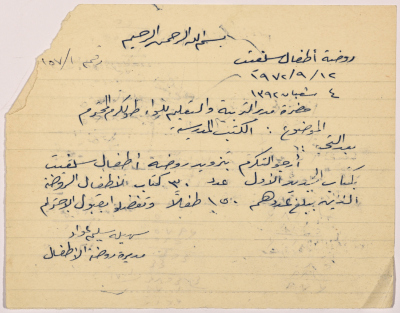 بسم الله الرحمن الرحيم
روضة أطفال سلفيت
رقم ١٥٧/١
١٢/٩/١٩٧٢
٤ شعبان ١٣٩٢
حضرة مدير التربية والتعليم للواء طولكرم المحترم
الموضوع : الكتب المدرسية
بعد التحية ::
أرجو التكرم بتزويد روضة أطفال سلفيت
بكتاب الجديد الأول عدد ٣٠ كتاب لأطفال الروضة
الذين يبلغ عددهم ١٥٠ طفلاً وتفضلوا بقبول الاحترام
سهيلة سليم
مديرة روضة الأطفال